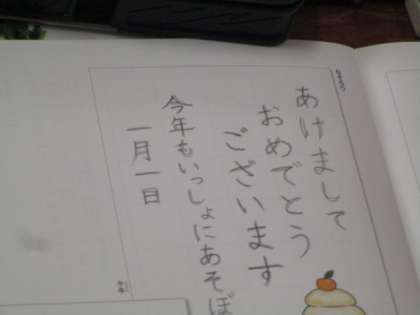 あけまして
おめでとう
ございます
今年もいっしょにあそぼ
一月一日